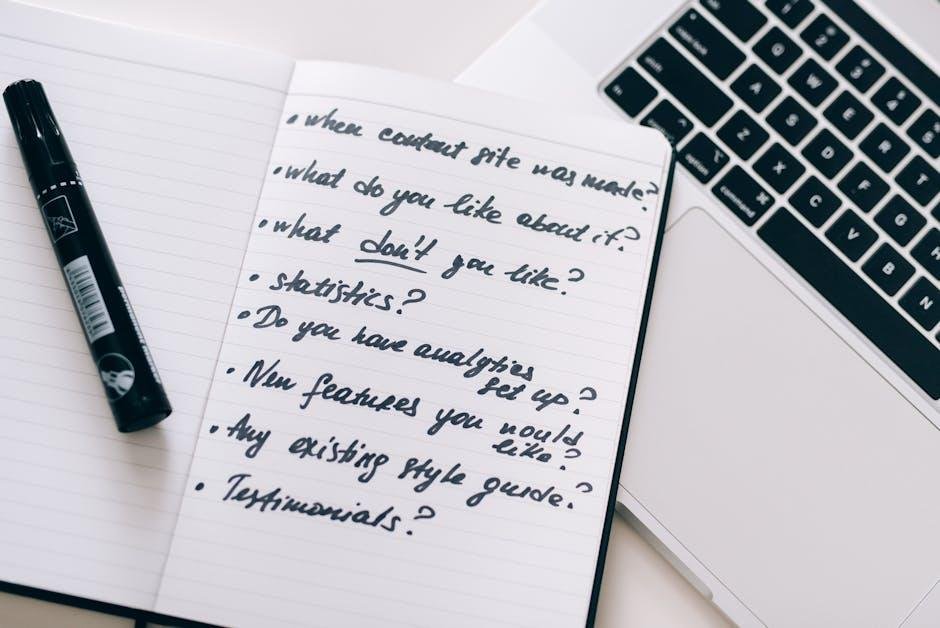 • when content site was made?
• what do you like about it?
• what don't you like?
• statistics?
• Do you have analytics
set up?
• New features you would
like?
• Any existing style guide?
• Testimonials?
fn
caps lock
shift
option
command
Q
W
E
R
T
A
S
D
F
G
H
Z
X
C
V
B
N
2
3
4
5